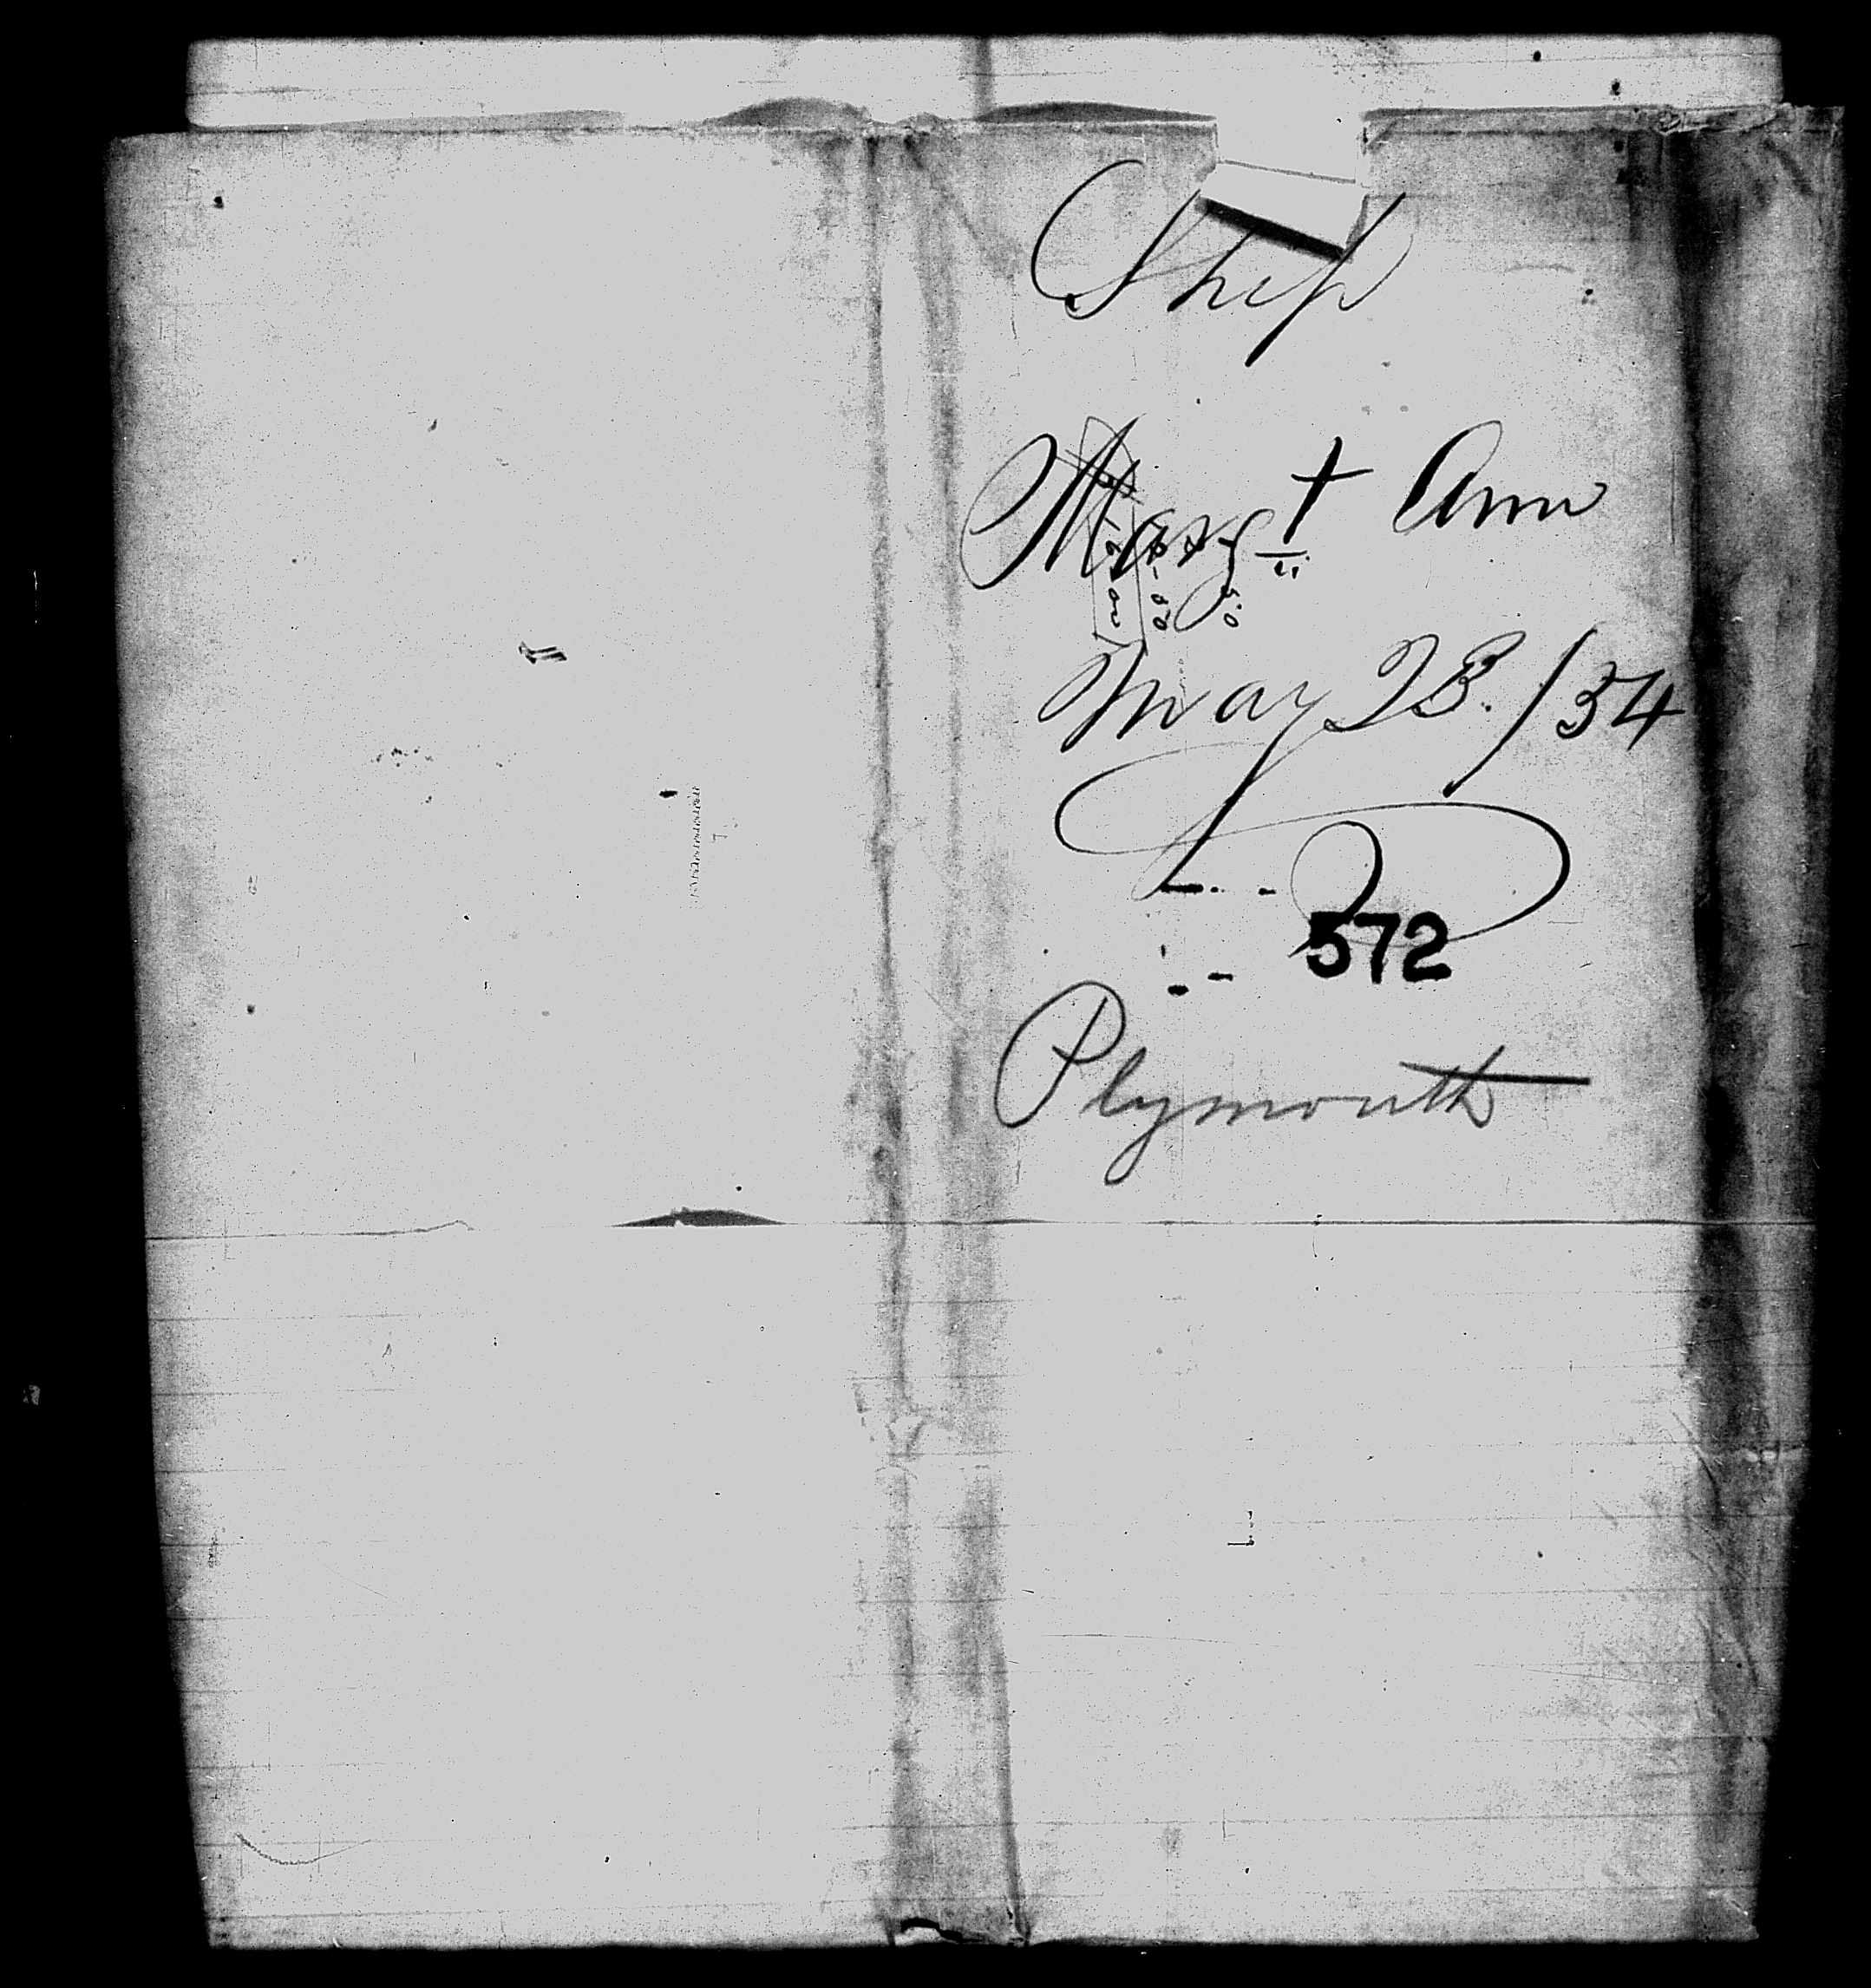 Ship
Margt Ann
May 28./34
572
Plymouth